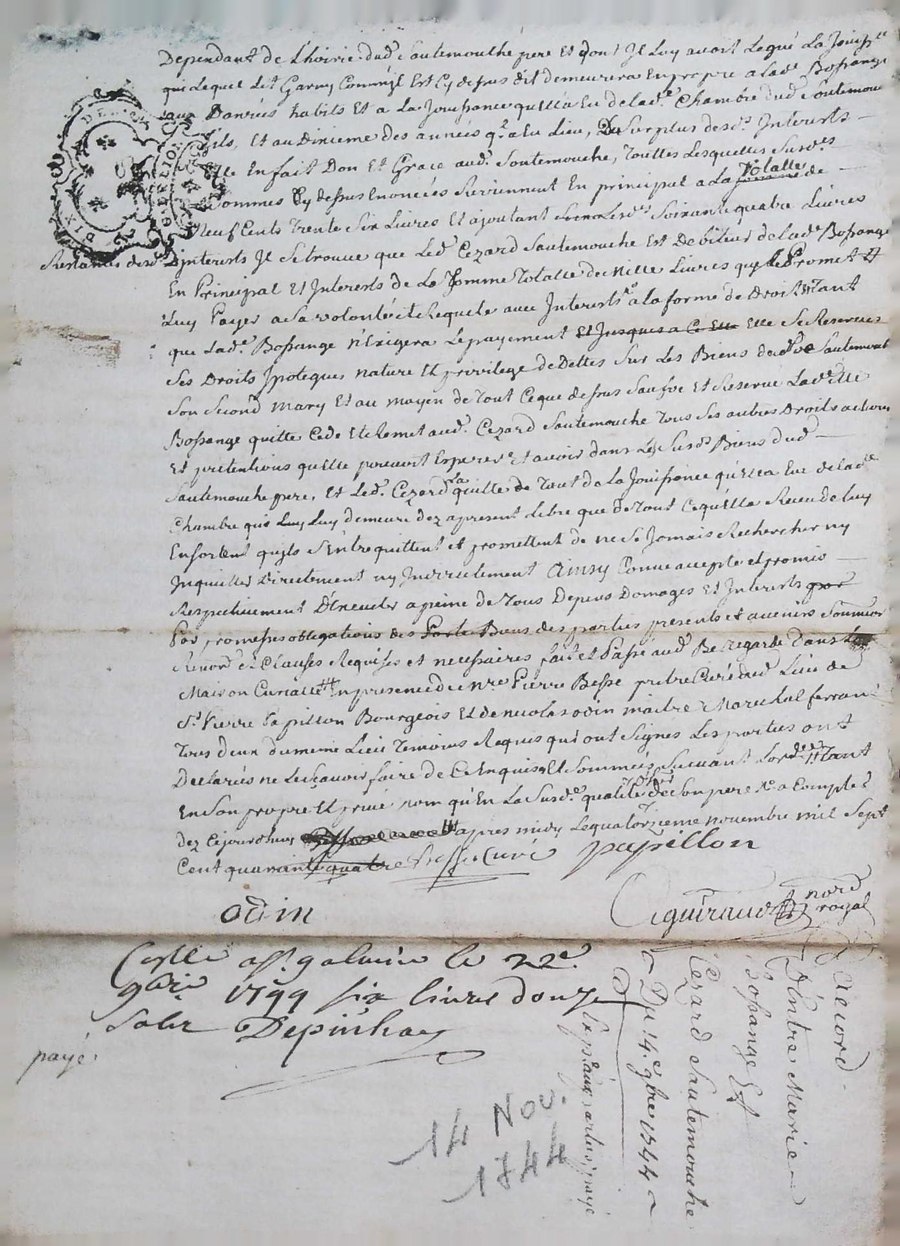 Dependant de Lhoirie dud. Sautemouche pere Et dont Il Luy avoit Legué La Jouissce
qui Lequel Let Garny Comme Il Est Cy dessus dit demeurera En propre a Lade Bossange
aux Danrées habits Et a La Jouissance quelle a Eu de lade Chambre dud. Soutemou
fils, Et au Dixieme des années q. a Eu Lieu, Du Surplus desd. Interests
Elle En fait Don Et Grace aud. Soutemouche, Touttes Lesquelles Susdes
Sommes Cy dessus Enoncées Reviennent En principal a La Totalle de
Neuf Cents Trente Six Livres Et ajoutant Soixante quatre Livres
Restantes desd. Interests Il Se trouve que Led. Cezard Sautemouche Est Debiteur de lade Bossange
En Principal Et Interests de La Somme Totalle de Mille Livres que Promet
Luy Payer a Sa volonté et Requete avec Interests a la forme de Droit Tant
que Lade Bossange n'Exigera Le payement Elle Se Reserve
Ses Droits Ipoteques nature Et privilege de Dettes Sur Les Biens dud. Sautemouch
Son Second Mary Et au moyen de Tout Ce que dessus Sauf Et Reservé Lade
Bossange quitte Cede Et Remet aud. Cezard Sautemouche Tous Ses autres Droits actions
Et pretentions quelle pouvoit Esperer Et avoir dans Les Susd. Biens dud.
Sautemouche pere, Et Led. Cezard La quitte de Tout de La Jouissance qu'Ella Eue de lade
Chambre qui Luy demeure dez apresent Libre que de Tout Ce qu'Ella Receu de luy
Ensortent qu'ils S'Entrequittent et promettent de ne Se Jamais Rechercher ny
Inquiéter Directement ny Indirectement Ainsy Convenu accepte et promis
Respectivement D'Executer a peine de Tous Depens Domages Et Interests
Par promesses obligations des Biens des parties presents et avenirs Soumissions
Renonc.ons Clauses Requises et necessaires fait et Passé aud. Bellegarde Dans La
Maison Curialle En presence de Mre Pierre Besse pretre Curé dud. Lieu de
Sr. Pierre Papillon Bourgeois Et de Nicolas odin maitre Marechal ferrant
Tous deux du meme Lieu Temoins Requis qui ont Signés Les parties ont
Declarées ne Le Scavoir faire de Ce Enquis Et Sommées Suivant Lordce Tant
En Son propre Et privé nom qu'En La Susde qualité de Son pere Et a Compter
dez Cejourdhuy apres midy Le quatorzieme novembre mil Sept
Cent quarante quatre Besse Curé papillon
odin
Aguiraud nore royal
Con.lle a St. galmier le 22e
9bre 1744 six livres douze
Solz Depinhac
payé
Accord
D'Entre Marie
Bossange Et
Cezard Sautemouche
Du 14e 9bre 1744
14 NOV.
1744